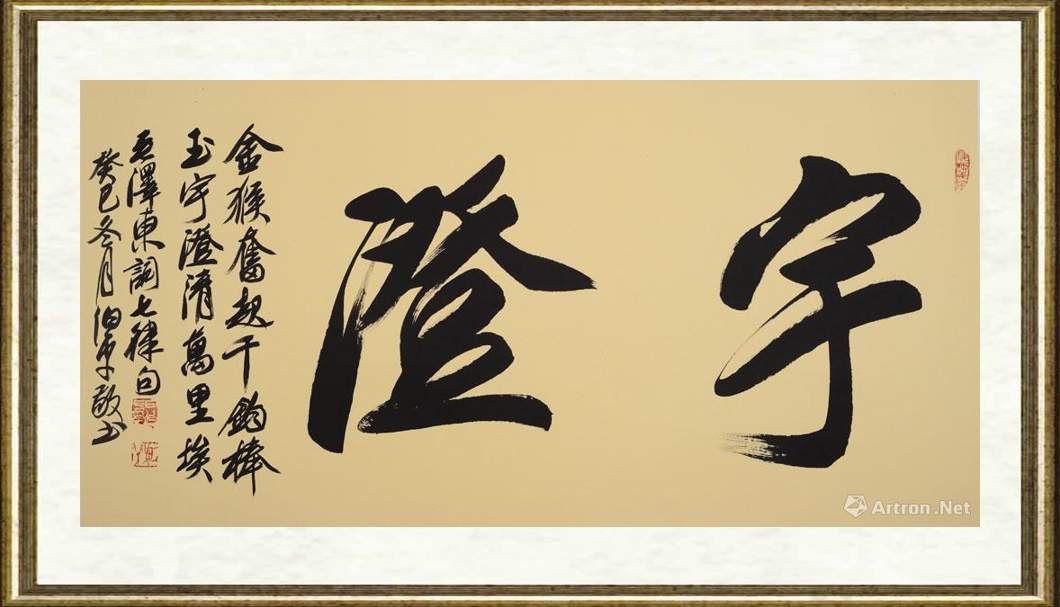 宇澄
金猴奮起千鈞棒
玉宇澄清萬里埃
毛澤東詞七律句
癸巳冬月敬书
Artron.Net